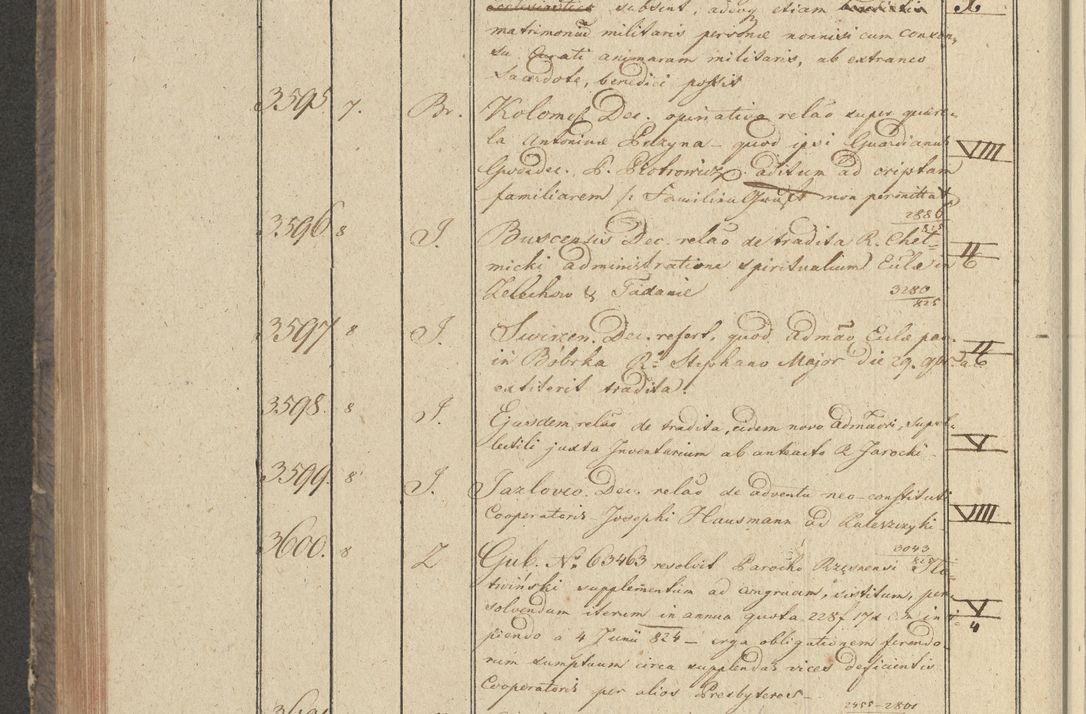 subsint, adeoq etiam X
matrimoniũ militaris personæ nonnisi cum consen,
su Curati animarum militaris, ab extraneo
Sacerdote, benedici possit
3595 7. Br. Kolomeÿ. Dec. opinativa relaõ super quære-
la Antoninæ - quod ipsi Guardianus VIII
Gwózdec. P. Piotrowicz aditum ad criptam
familiarem non permittat
2886
825
3596 8 J. Buscensis Dec. relaõ de tradita R. Cheł-
micki administratione spiritualium Ecclæ in II
6
Żelechow & Tadanie 3280
825
3597 8 J. Swirzen. Dec. refert, quod admão Ecclæ par.
in Bóbrka Rdo Stephano Major die 29. 9bris a c II
6
extiterit tradita.
3598. 8 J. Ejusdem relaõ de tradita, eidem novo Admãori, supel-
lectili juxta Inventarium ab anteacto R Jarocki - V
3599. 8 J. Jazlovec. Dec. relaõ de adventu neo-constituti
Cooperatoris Josephi Hausmann ad Zaleszczyki - VIII
3043
825
3600. 8 Z Gub. No. 63463 resolvit Parocho Rzęsnensi
twiński supplementum ad congruam, sistitum, per-
solvendum iterum in annua quota 228f 17x C.M. inci- V
4
piendo a 4 Junii 824 - erga obligationem ferendo-
rum sumptuum circa supplendas vices deficientis
Cooperatoris per alios Presbyteros -
2455-2801